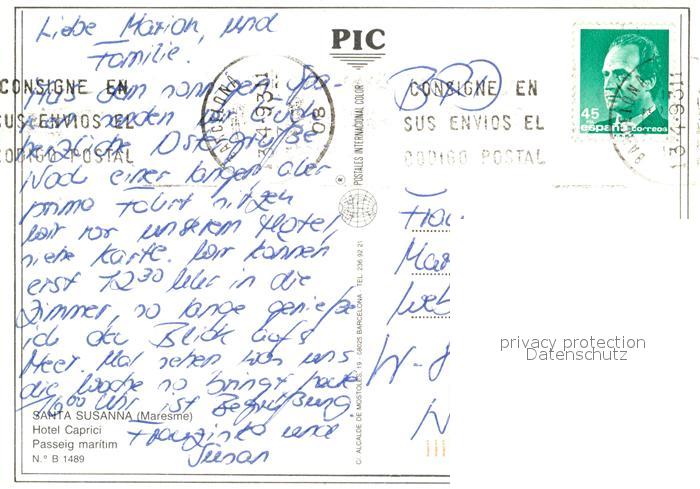 Liebe Marion, und
Familie.
PIC
BRD
CONSIGNE EN
SUS ENVIOS EL
CODIGO POSTAL
BARCELONA
3-4-93
08
CONSIGNE EN
SUS ENVIOS EL
CODIGO POSTAL
45
españa correos
BARCELONA
3-4-93
Aus dem sonnigen Spa-
nien senden wir Euch
herzliche Ostergrüße
Nach einer langen aber
prima Fahrt sitzen
wir vor unserem Hotel,
siehe Karte. Wir können
erst 12³⁰ Uhr in die
Zimmer, so lange genieße
ich den Blick auf's
Meer. Mal sehen was uns
die Woche so bringt, heute
16⁰⁰ Uhr ist Begrüßung.
Franziska und
Susan
SANTA SUSANNA (Maresme)
Hotel Caprici
Passeig marítim
N.º B 1489
POSTALES INTERNACIONAL COLOR
C/. ALCALDE DE MOSTOLES, 19 - 08025 BARCELONA - TEL. 236 92 21
W-8
privacy protection
Datenschutz